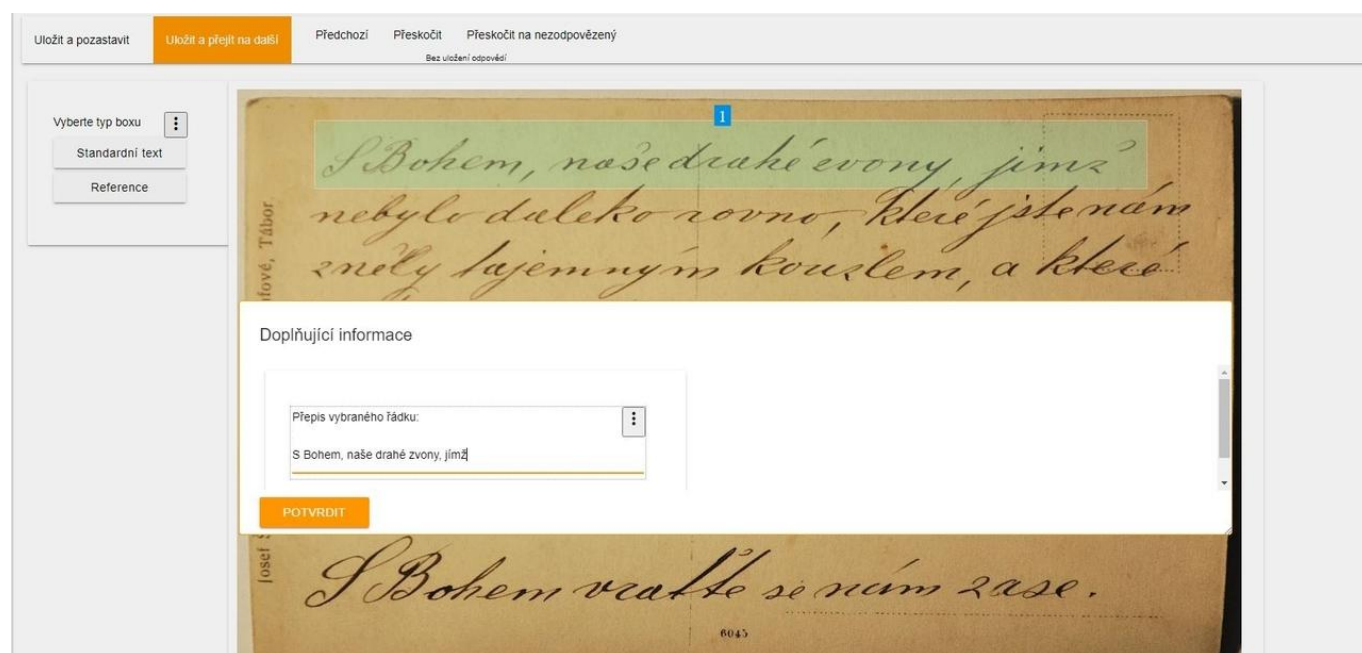 Uložit a pozastavit
Uložit a přejít na další
Předchozí
Přeskočit
Přeskočit na nezodpovězený
Bez uložení odpovědí
Vyberte typ boxu
Standardní text
Reference
1
S Bohem, naše drahé zvony, jímž
nebylo daleko rovno, které jste nám
zněly tajemným kouzlem, a které
Tábor
Doplňující informace
Přepis vybraného řádku:
S Bohem, naše drahé zvony, jímž
POTVRDIT
Josef
S Bohem vraťte se nám zase.
6045